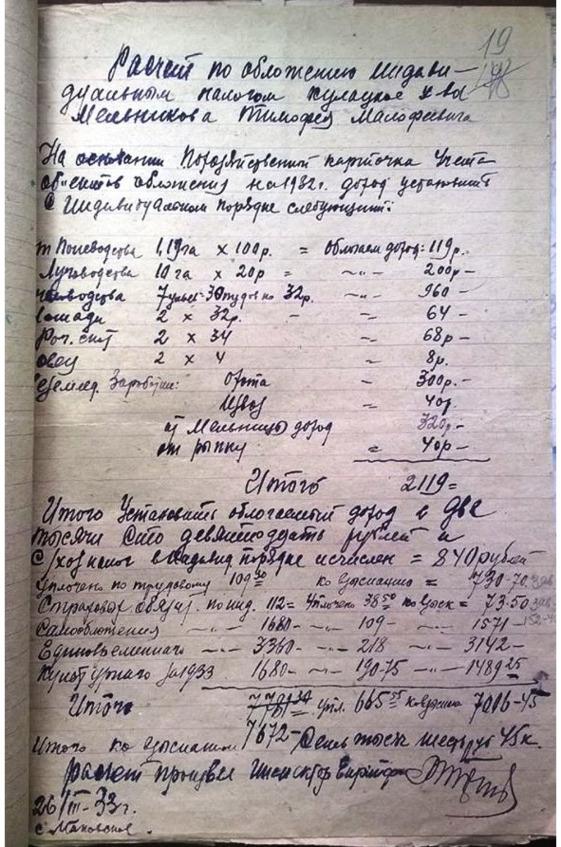 19
Расчет по обложению индиви-
дуальным налогом кулацкое х-ва
Мельникова Тимофея Малофеевича
На основании Похозяйственной карточка Учета
об'ектов обложения на 1932г. доход установить
в Индивидуальном порядке следующий:
т Полеводства 1,19га х 100р. = Облагаем доход: 119р.
Луговодства 10га х 20р = -"- 200р-
человодства 7 ульев 30 пудов по 32р. -"- 960-
лошади 2 х 32р. - -"- 64-
Рог. скот 2 х 34 = 68р-
овец 2 х 4 = 8р.
Заработки: Охота = 300р.-
Извоз = 40р.
от Мельницы доход 320р.-
от рынку = 40р-
Итого 2119=
Итого Установить облагаемый доход в две
тысячи сто девятнадцать рублей и
с/хоз налог в индивид порядке исчислен = 840 рублей
Уплочено по трудовому 109 30 ко взысканию = 730-70
Страховат. обязат. по инд. 112= Уплочено 38 50 ко взыск = 73-50
Самообложения -"- 1680- -"- 109- -"- 1571-
Единовременного -"- 3360- -"- 218 -"- 3142-
Культурнаго за 1933 1680- -"- 190-75 -"- 1489 25
Итого упл. 665 55 ко взысканию 7006-45
Итого ко взысканию 7672- Семь тысяч шесть руб 45 к.
Расчет произвел Инспектор
26/III-33г.
с. Маковское.